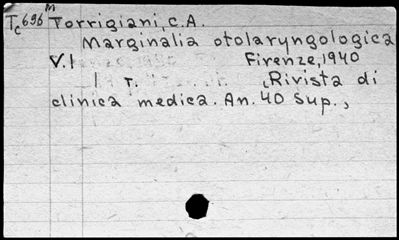 Tc696 M Torrigiani, C.A.
Marginalia otolaryngologica
V.1 Firenze, 1940
1 T. , Rivista di
clinica medica. An. 40 Sup.,